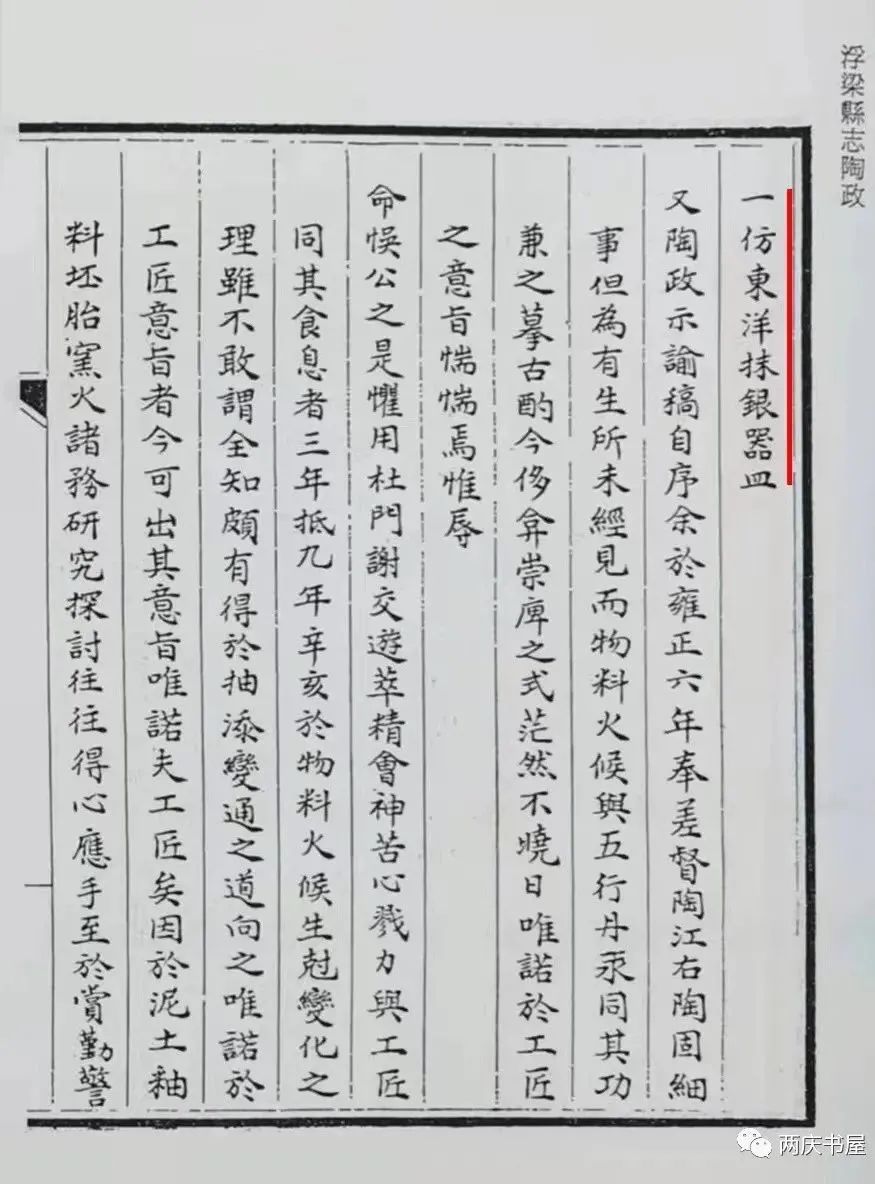 浮梁縣志陶政
一仿東洋抹銀器皿
又陶政示諭稿自序余於雍正六年奉差督陶江右陶固細
事但為有生所未經見而物料火候與五行丹汞同其功
兼之摹古酌今侈弇崇庳之式茫然不曉日唯諾於工匠
之意旨惴惴焉惟辱
命悞公之是懼用杜門謝交遊萃精會神苦心戮力與工匠
同其食息者三年抵九年辛亥於物料火候生尅變化之
理雖不敢謂全知頗有得於抽添變通之道向之唯諾於
工匠意旨者今可出其意旨唯諾夫工匠矣因於泥土釉
料坯胎窯火諸務研究探討往往得心應手至於賞勤警
两庆书屋